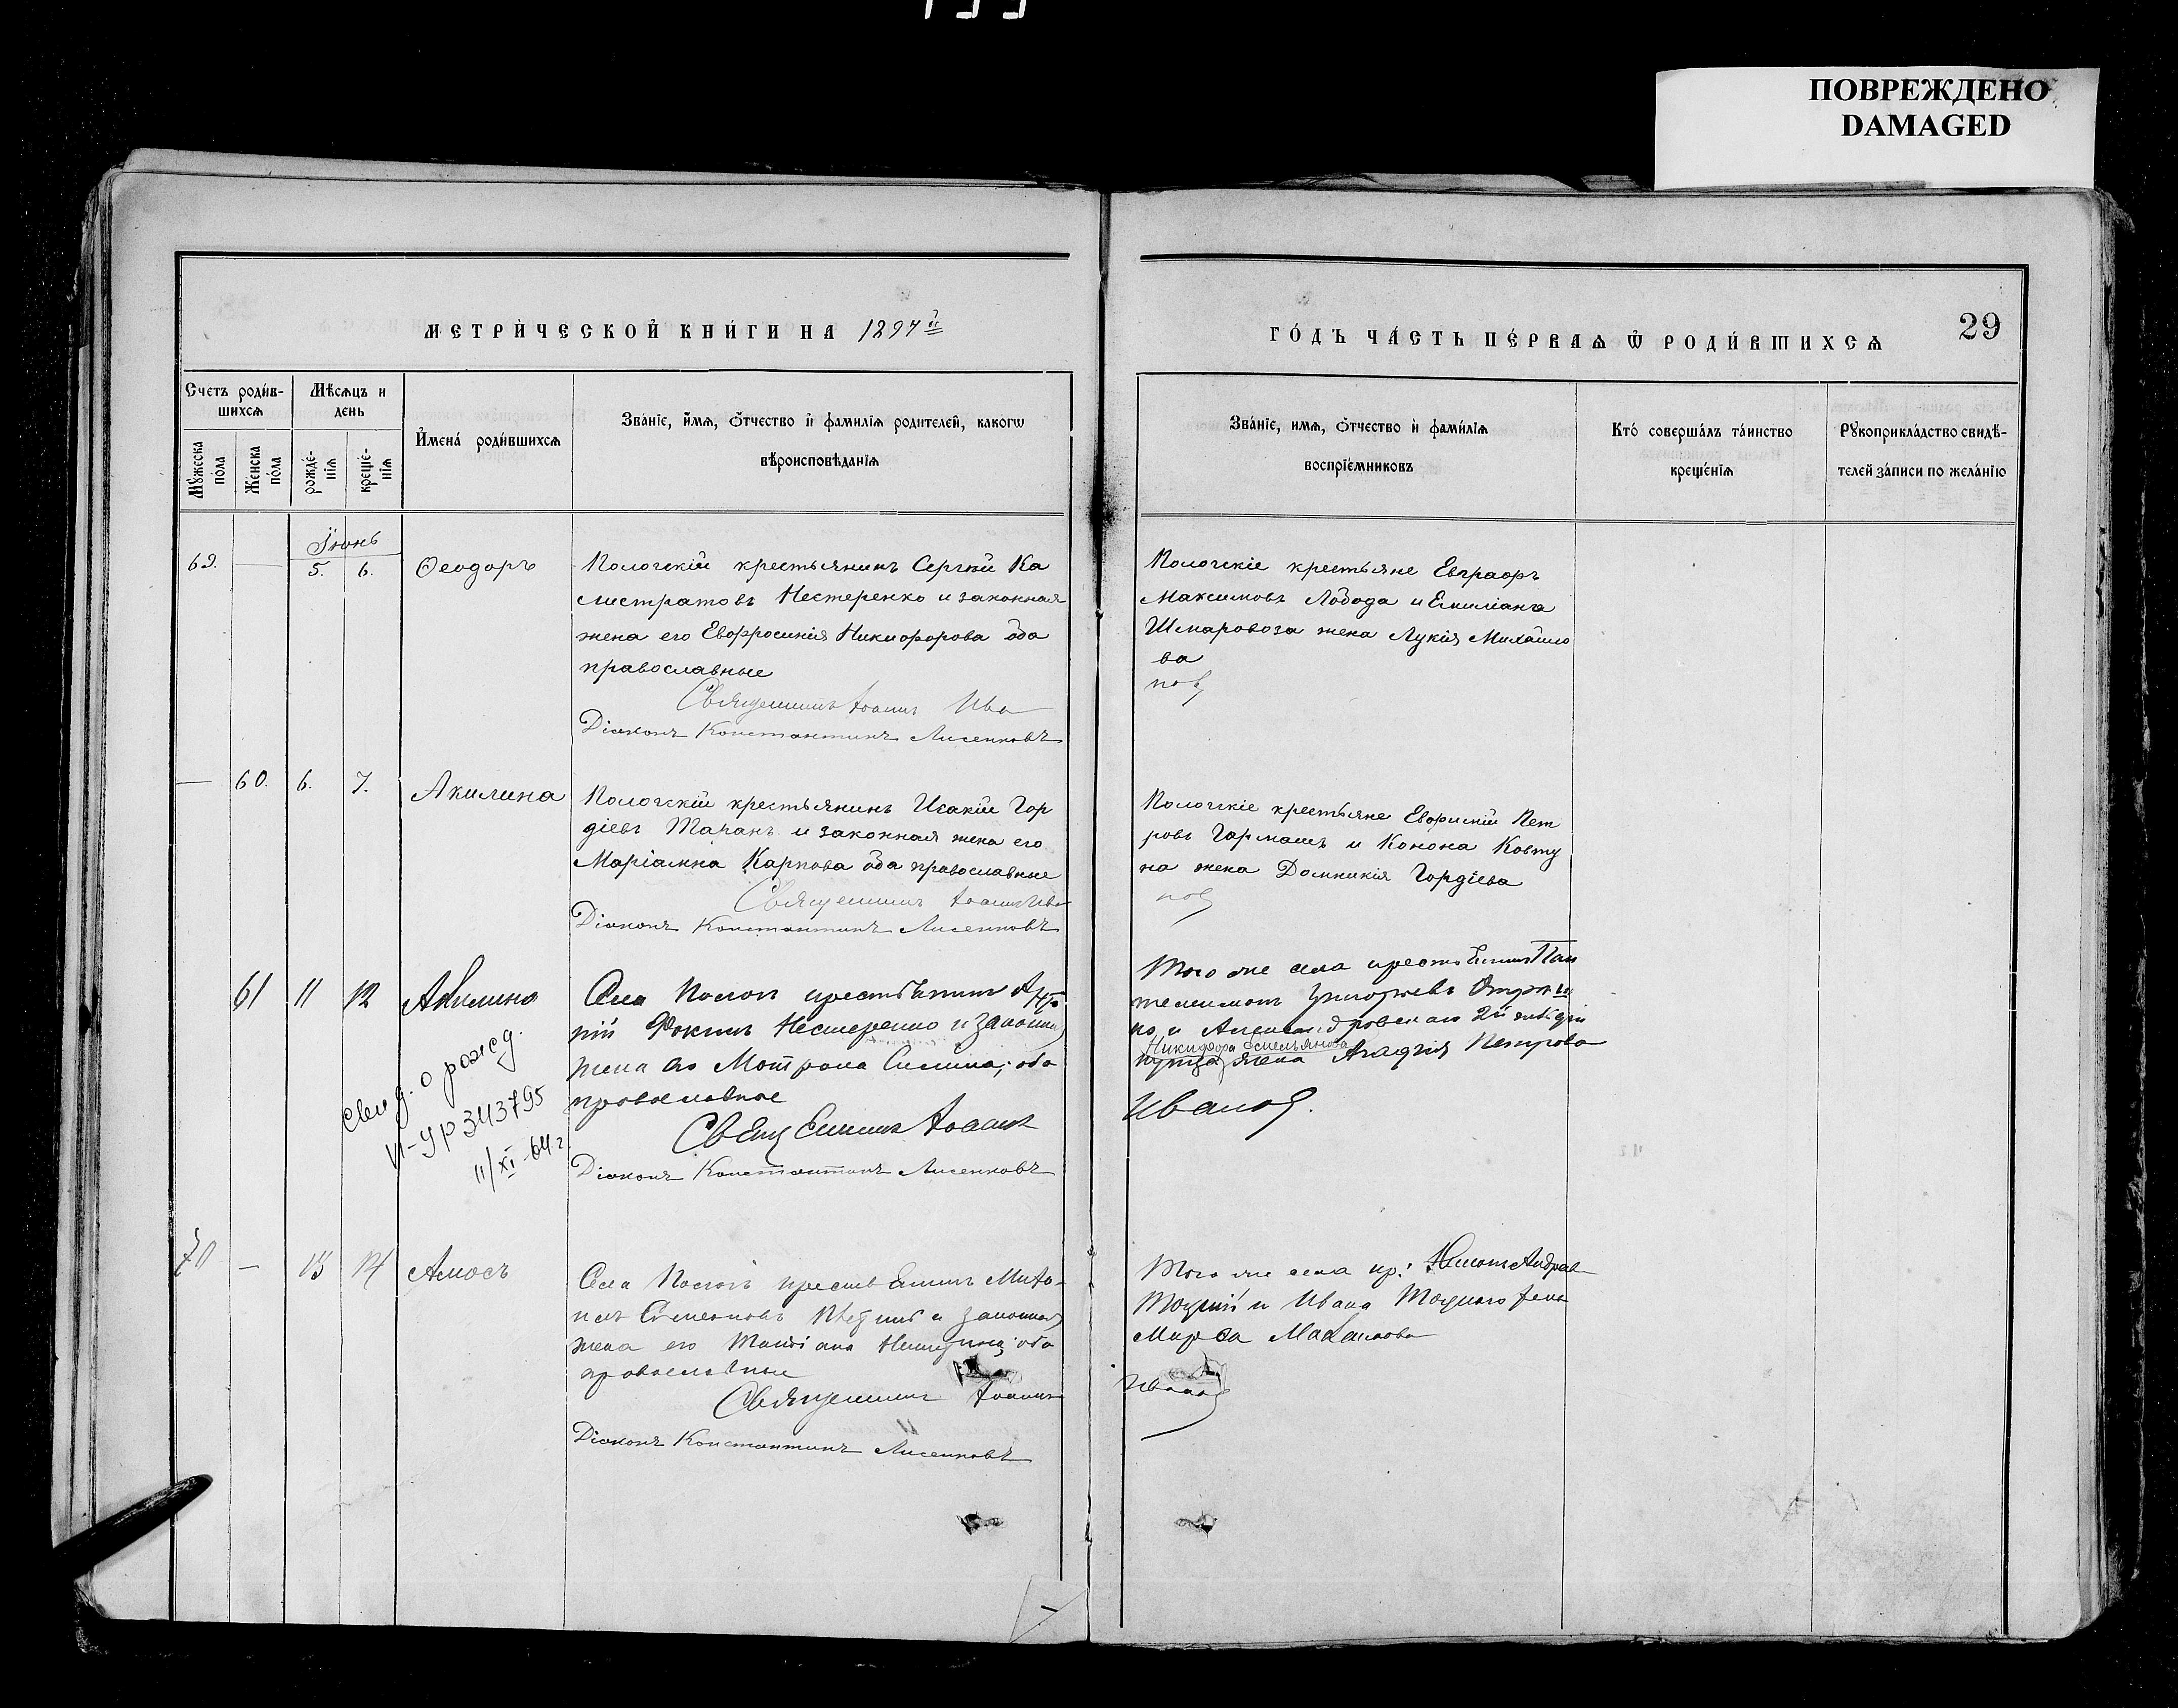 ПОВРЕЖДЕНО
DAMAGED
МЕТРИ́ЧЕСКОЙ КНИ́ГИ НА 1894й
ГО́ДЪ ЧА́СТЬ ПЕ́РВАѦ Ѿ РОДИ́ВШИХСѦ
29
Счетъ роди́в-
шихсѧ
Мѣ́сѧцъ и
день
Мꙋ́жеска
по́ла
Же́нска
по́ла
рожде́-
нїѧ
креще́-
нїѧ
И҆мена́ роди́вшихсѧ
Зва́нїе, и҆́мѧ, ѻ҆́тчество и҆ фами́лїѧ роди́телей, како́гѡ
вѣроисповѣ́данїѧ
Зва́нїе, имѧ, ѻ҆́тчество и҆ фами́лїѧ
воспрїе́мниковъ
Кто́ соверша́лъ та́инство
креще́нїѧ
Рꙋкоприкла́дство свидѣ́-
телей за́писи по жела́нїю
Іюнь
69. — 5. 6. Ѳеодоръ
Пологскій крестьянинъ Сергѣй Ка
листратовъ Нестеренко и законная
жена его Евфросинія Никифорова оба
православные
Священникъ Іоаннъ Ива
Діаконъ Константинъ Лисенковъ
Пологскіе крестьяне Евграфъ
Максимовъ Лобода и Емиліана
Шмаровоза жена Лукія Михайло
ва
новъ
— 60. 6. 7. Акилина
Пологскій крестьянинъ Исакій Гор
діевъ Таранъ и законная жена его
Маріамна Карпова оба православные
Священникъ Іоаннъ Ива
Діаконъ Константинъ Лисенковъ
Пологскіе крестьяне Евфимій Пет
ровъ Гармашъ и Конона Ковту
на жена Домникія Гордіева
новъ
61 11 12 Акилина
Села Пологъ крестьянинъ
Фокинъ Нестеренко и законная
жена его Матрона Силина; оба
православные
Священникъ Іоаннъ
Діаконъ Константинъ Лисенковъ
свид. о рожд.
VI-УР 343795
11/XI-64 г.
Того же села крестьянинъ Пан
телеимонъ Григорьевъ
но и Александровскаго 2й гильдіи
Никифора Емельянова
купца жена Агафія Петрова
Ивановъ.
70 — 13 14 Амосъ
Села Пологъ крестьянинъ
Семеновъ и законная
жена его оба
православные
Священникъ Іоаннъ
Діаконъ Константинъ Лисенковъ
Того же села кр:
Тоцкій и Ивана Тоцкого жена
Марѳа
Ивановъ